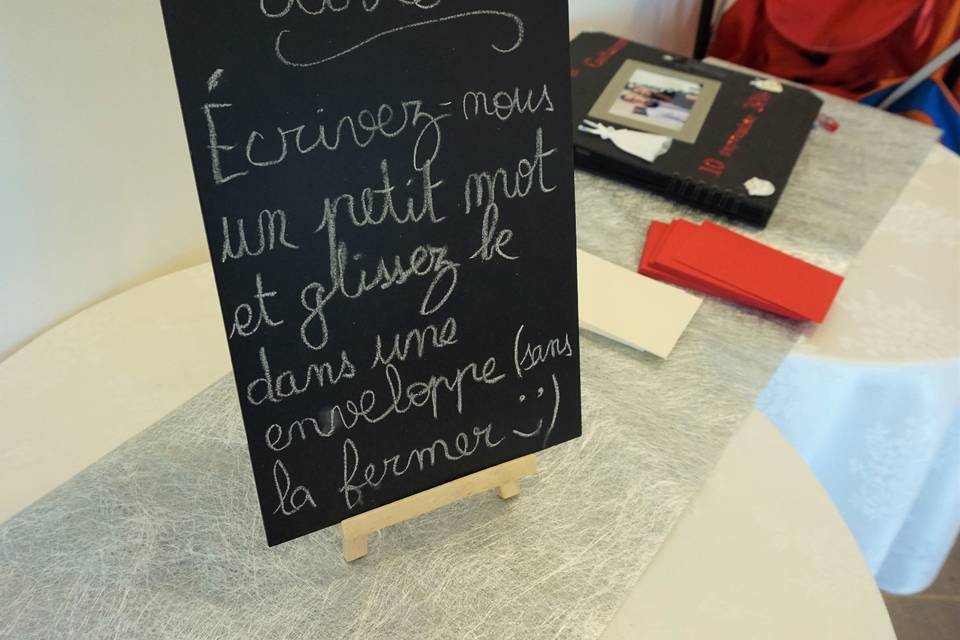 Écrivez-nous
un petit mot
et glissez le
dans une
enveloppe (sans
la fermer :)